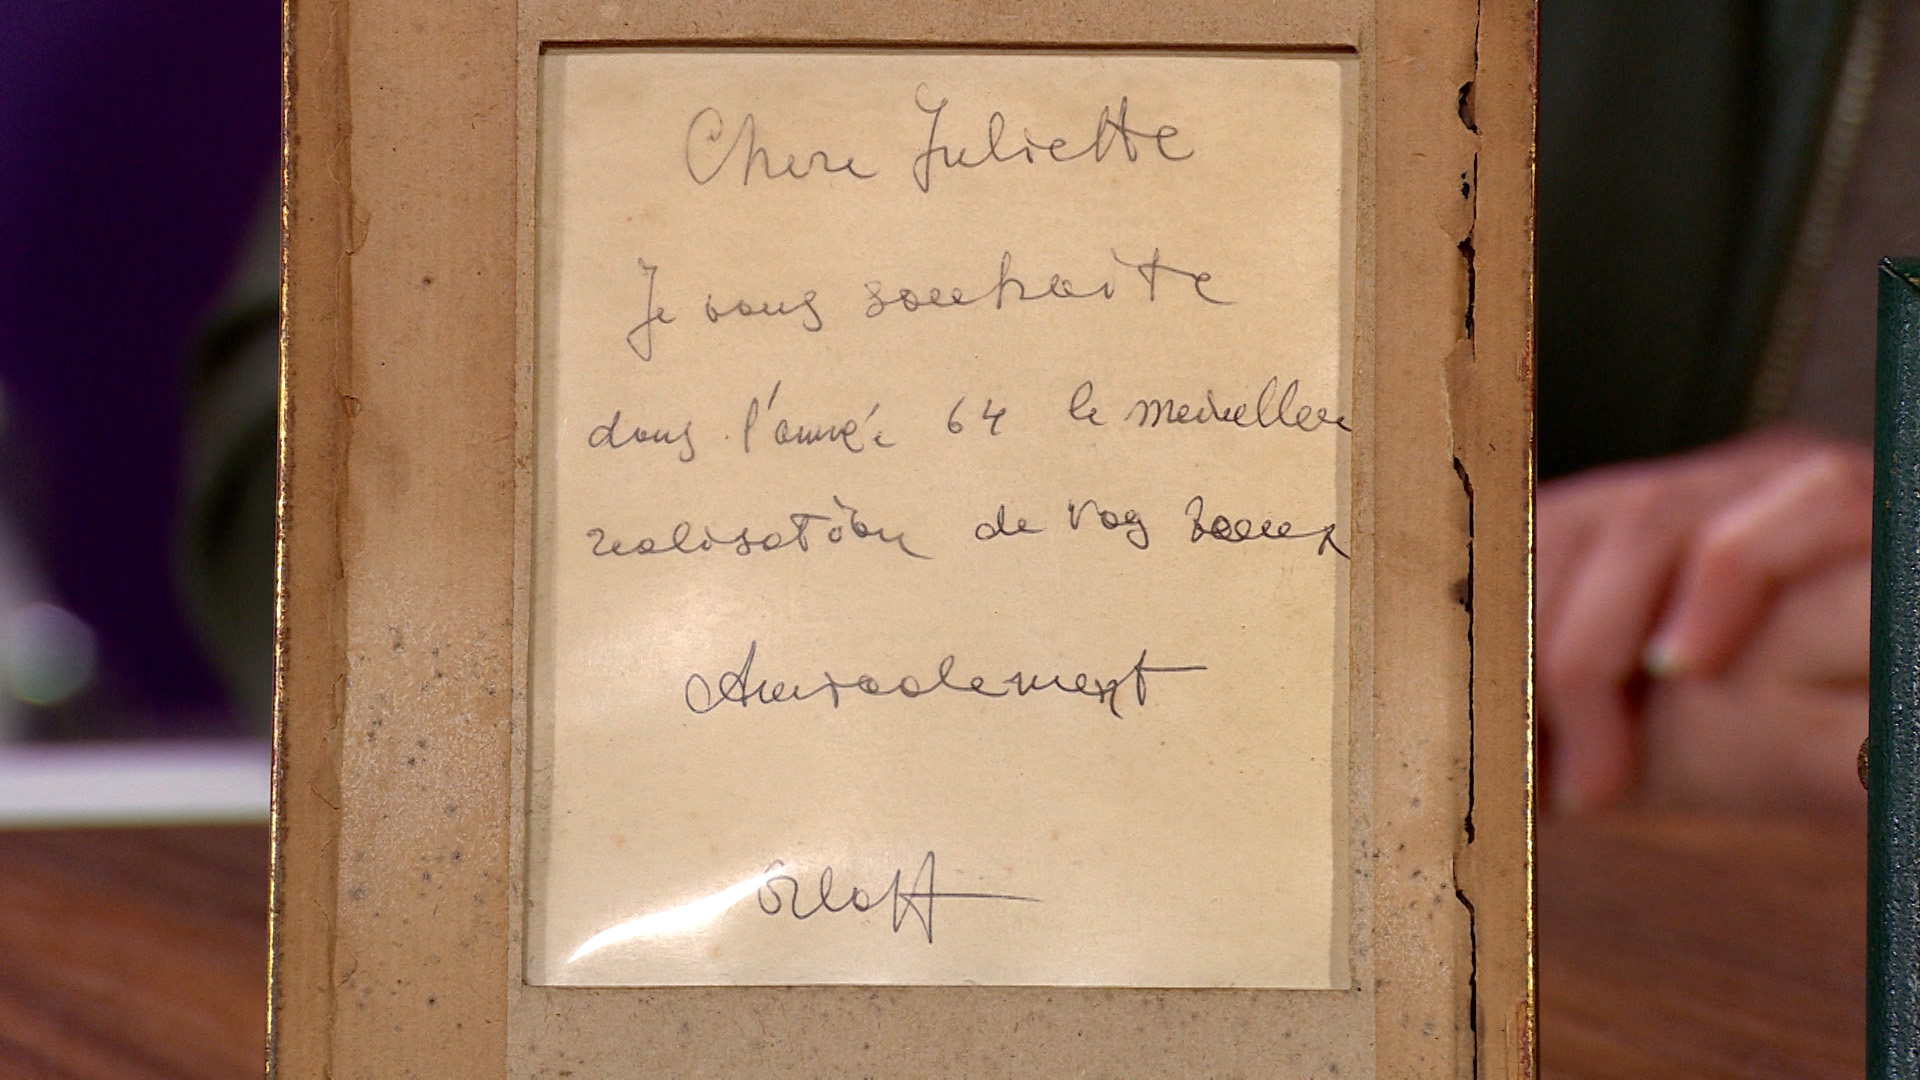 Chere Juliette
Je vous souhaite
dans l'année 64 le meilleure
realisation de vos voeux
Amicalement
Orloff